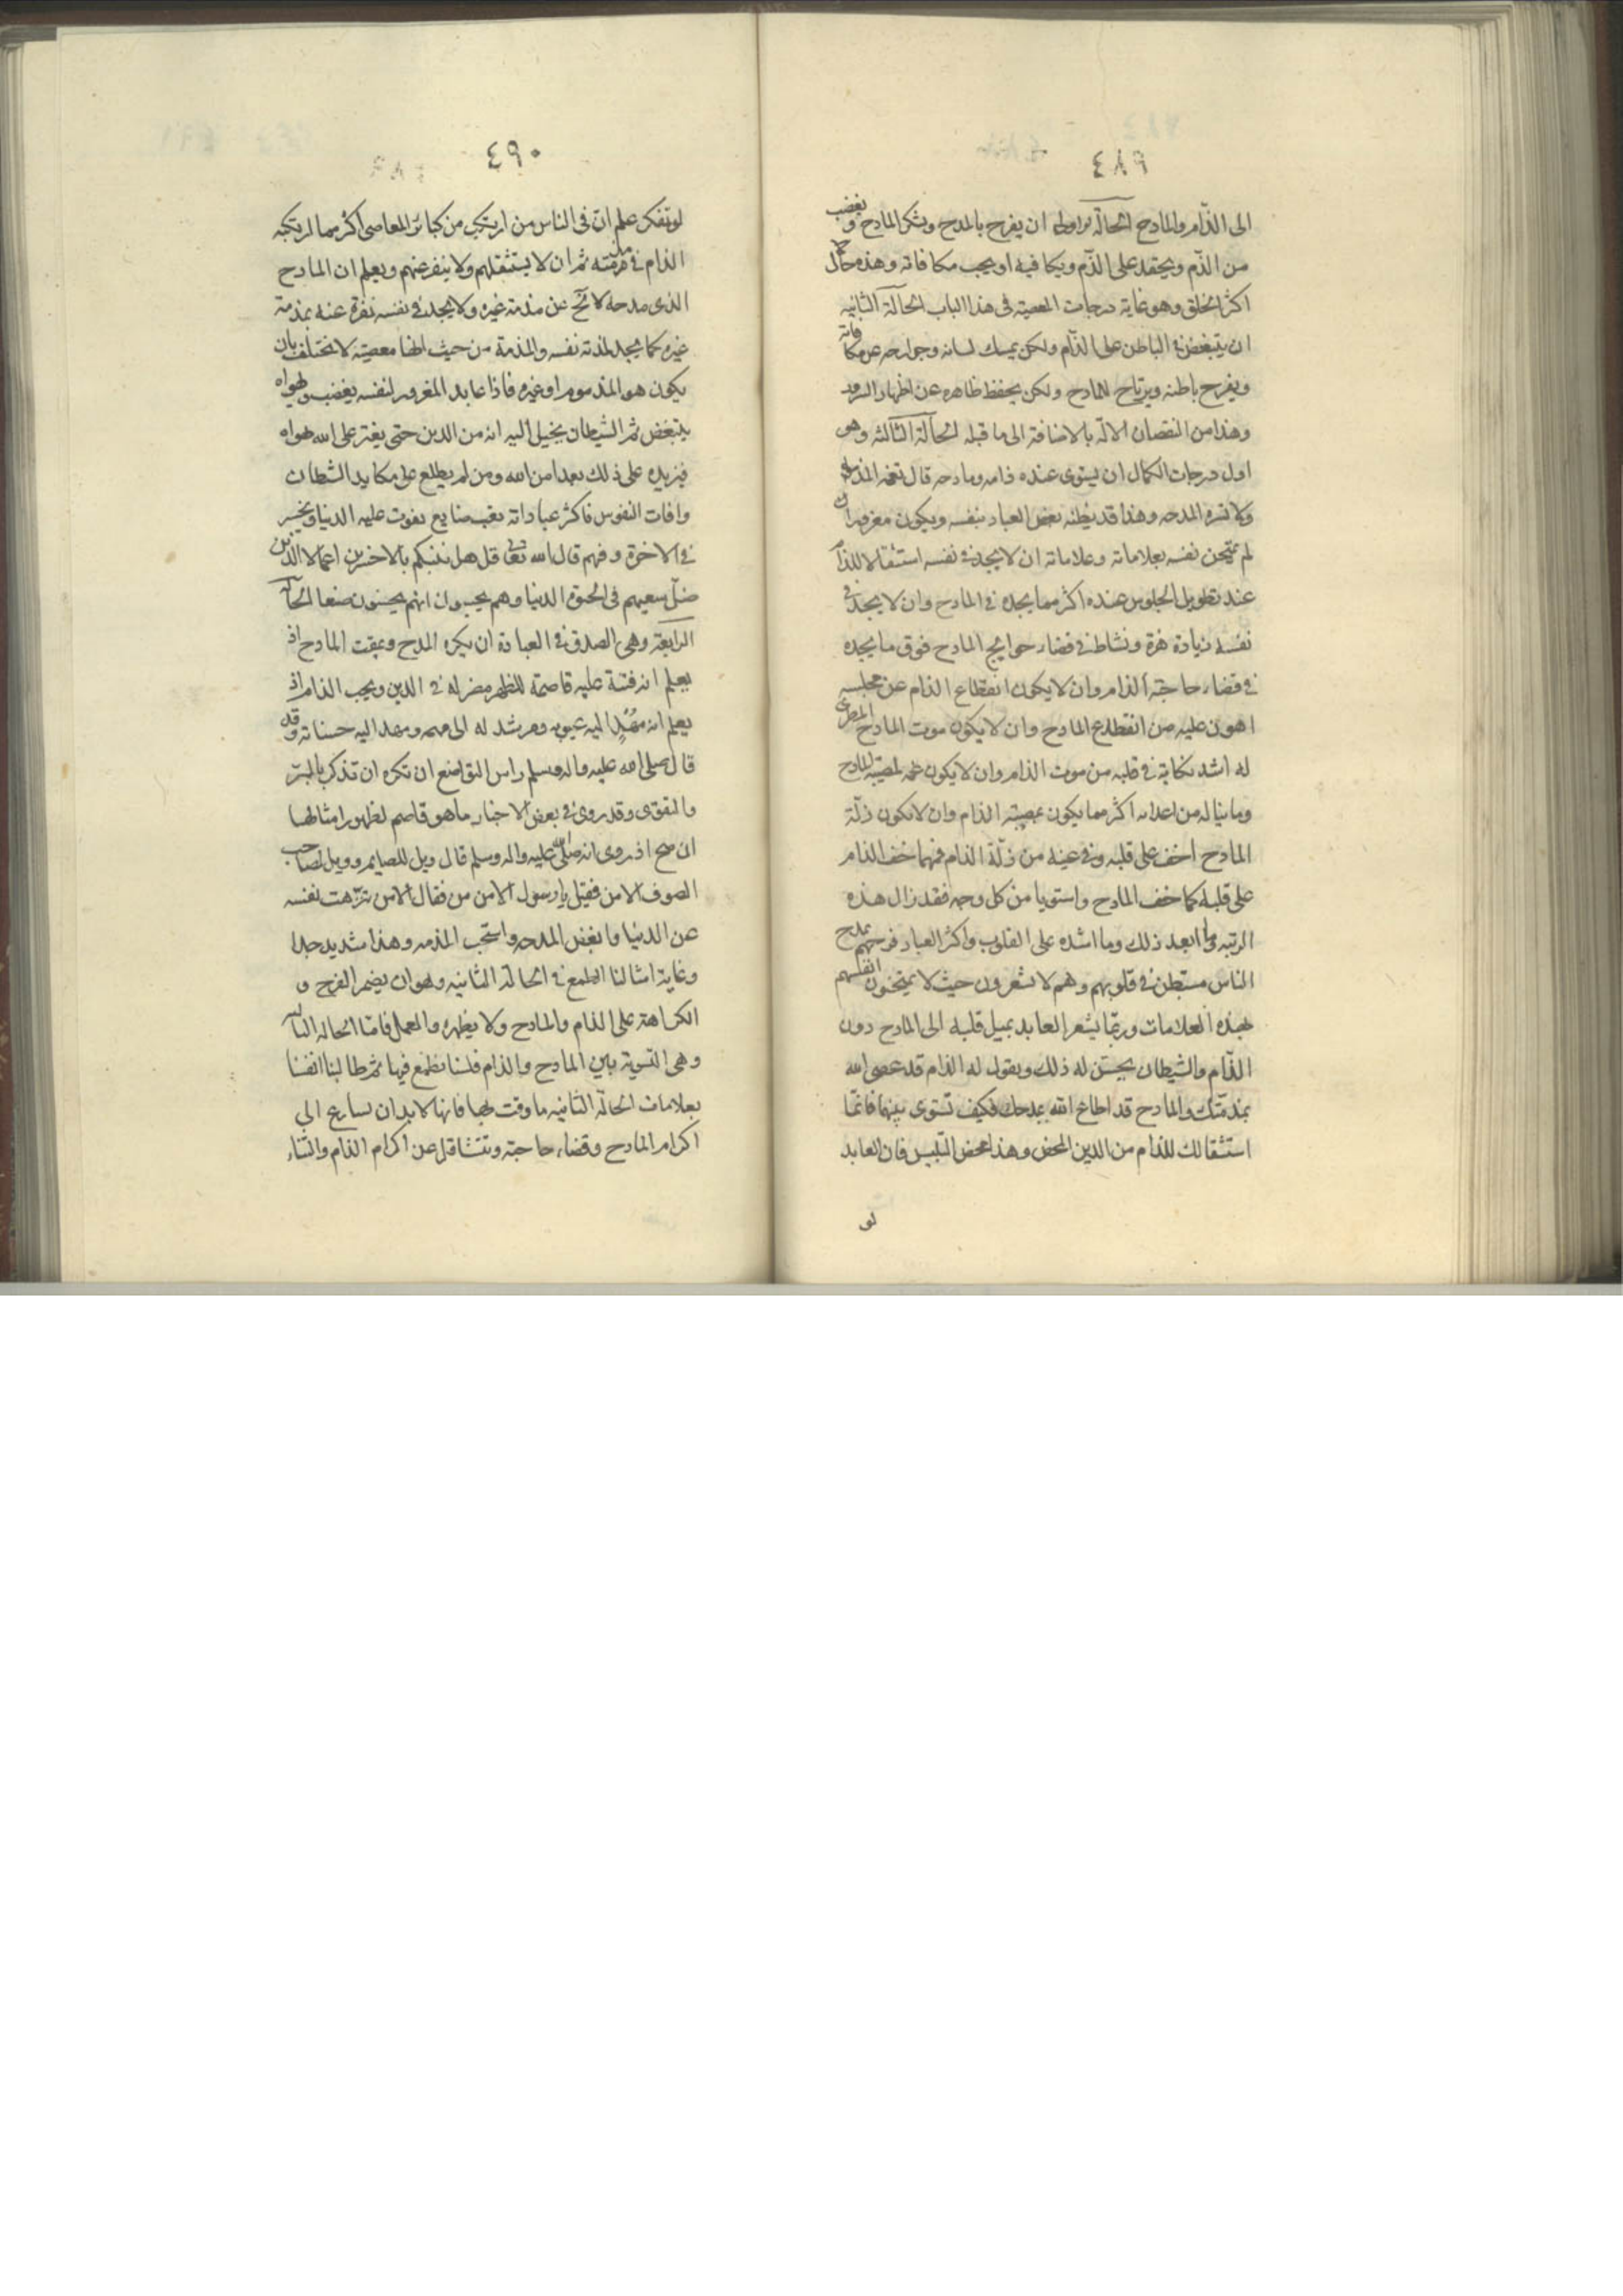 ٤٨٩
الى الذّام والمادح الحالة الاولى ان يفرح بالمدح ويشكر المادح ويغضب
من الذّم ويحقد على الذّام ويكافيه او يحب مكافاته وهذه حال
اكثر الخلق وهو غاية درجات المعصية فى هذا الباب الحالة الثانية
ان يتبغض فى الباطن على الذّام ولكن يمسك لسانه وجوارحه عن مكافاته
ويفرح باطنه ويرتاح للمادح ولكن يحفظ ظاهره عن اظهار السرور
وهذا من النقصان الا انّه بالاضافة الى ما قبله الحالة الثالثة وهى
اول درجات الكمال ان يستوى عنده ذامه ومادحه فلا تغمه المذمة
ولا تسره المدحه وهذا قد يظنه بعض العباد بنفسه ويكون مغرورا ان
لم يمتحن نفسه بعلاماته وعلاماته ان لا يجد فى نفسه استثقالا للذام
عند تطويل الجلوس عنده اكثر مما يجده فى المادح وان لا يجد فى
نفسه زيادة هزة ونشاط فى قضاء حوايج المادح فوق ما يجده
فى قضاء حاجة الذام وان لا يكون انقطاع الذام عن مجلسه
اهون عليه من انقطاع المادح وان لا يكون موت المادح المطرى
له اشد نكاية فى قلبه من موت الذام وان لا يكون غمه لمصيبة المادح
وما يناله من اعدائه اكثر مما يكون بمصيبة الذام وان لا تكون ذلّة
المادح اخف على قلبه وفى عينه من ذلّة الذام فمهما خف الذام
على قلبه كما خف المادح واستويا من كل وجه فقد نال هذه
الرتبه وما ابعد ذلك وما اشده على القلوب واكثر العباد فرحهم بمدح
الناس مستبطن فى قلوبهم وهم لا يشعرون حيث لا يمتحنون انفسهم
بهذه العلامات وربّما يشعر العابد بميل قلبه الى المادح دون
الذّام والشيطان يحسّن له ذلك ويقول له الذام قد عصى الله
بمذمّتك والمادح قد اطاع الله بمدحك فكيف تسّوى بينهما فانّما
استثقالك للذام من الدين المحض وهذا محض التّلبيس فان العابد
لو
٤٩٠
لو تفكر علم انّ فى الناس من ارتكب من كبائر المعاصى اكثر مما ارتكبه
الذام فى مذمته ثم ان لا يستثقلهم ولا ينفر عنهم ويعلم ان المادح
الذى مدحه لا يخ عن مذمة غيره ولا يجد فى نفسه نفرة عنه بمذمة
غيره كما يجد لمذمة نفسه والمذمة من حيث انها معصية لا تختلف بان
يكون هو المذموم او غيره فاذا عابد المغرور لنفسه يغضب ولهواه
يتبغض ثم الشيطان يخيل اليه انه من الدين حتى يعتز على الله بهواه
فيزيده على ذلك بعدا من الله ومن لم يطلع على مكايد الشيطان
وافات النفوس فاكثر عباداته تعب ضايع يفوت عليه الدنيا ويخسر
فى الاخرة وفيهم قال الله تعالى قل هل ننبئكم بالاخسرين اعمالا الذين
ضلّ سعيهم فى الحيوة الدنيا وهم يحسبون انهم يحسنون صنعا الحالة
الرابعة وهى الصدق فى العبادة ان يكره المدح ويمقت المادح اذ
يعلم انه فتنة عليه قاصمة للظهر مضر له فى الدين ويحب الذام اذ
يعلم انه مُهْدٍ اليه عيوبه ومرشد له الى مهمه ومهد اليه حسناته وقد
قال صلى الله عليه واله وسلم راس التواضع ان تكره ان تذكر بالبرّ
والتقوى وقد روى فى بعض الاخبار ما هو قاصم لظهور امثالها
ان صح اذ روى انه صلى الله عليه واله وسلم قال ويل للصايم وويل لصاحب
الصوف الا من فقيل يا رسول الا من من فقال الا من تنزّهت نفسه
عن الدنيا وابغض المدحه واستحب المذمه وهذا شديد جدا
وغاية امثالنا الطمع فى الحالة الثانيه وهو ان يضمر الفرح و
الكراهة على الذام والمادح ولا يظهره والعمل فامّا الحاله الثالثة
وهى التسوية بين المادح والذام فلسنا نطمع فيها ثم طالبنا انفسنا
بعلامات الحالة الثانيه ما وفت بها فانها لا بد ان يسارع الى
اكرام المادح وقضاء حاجته وتتثاقل عن اكرام الذام والثناء